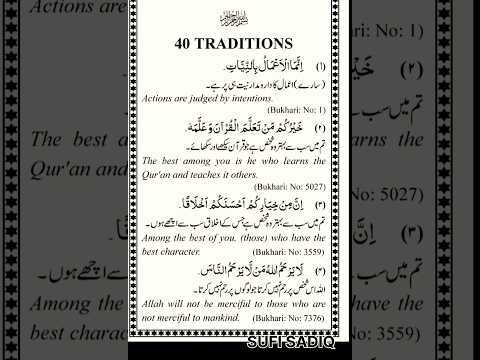 40 TRADITIONS
(۱) اِنَّمَا الْاَعْمَالُ بِالنِّيَّاتِ.
(سارے) اعمال کا دارومدار نیت ہی پر ہے۔
Actions are judged by intentions.
(Bukhari: No: 1)
(۲) خَيْرُكُمْ مَنْ تَعَلَّمَ الْقُرْآنَ وَعَلَّمَهُ.
تم میں سب سے بہتر وہ شخص ہے جو قرآن سیکھے اور سکھائے۔
The best among you is he who learns the
Qur'an and teaches it others.
(Bukhari: No: 5027)
(۳) اِنَّ مِنْ خِيَارِكُمْ اَحْسَنَكُمْ اَخْلَاقًا.
تم میں سب سے بہتر وہ شخص ہے جس کے اخلاق سب سے اچھے ہوں۔
Among the best of you, (those) who have the
best character. (Bukhari: No: 3559)
(۴) لَا يَرْحَمُ اللهُ مَنْ لَا يَرْحَمُ النَّاسَ.
اللہ اس شخص پر رحم نہیں کرتا جو لوگوں پر رحم نہیں کرتا۔
Allah will not be merciful to those who are
not merciful to mankind. (Bukhari: No: 7376)
SUFI SADIQ
Actions are
(۲) خَيْرُ
تم میں سب
The best
Qur'an and
5027)
(۳) اِنَّ
اچھے ہوں۔
Among the
have the
best character.
3559)
No: 1)